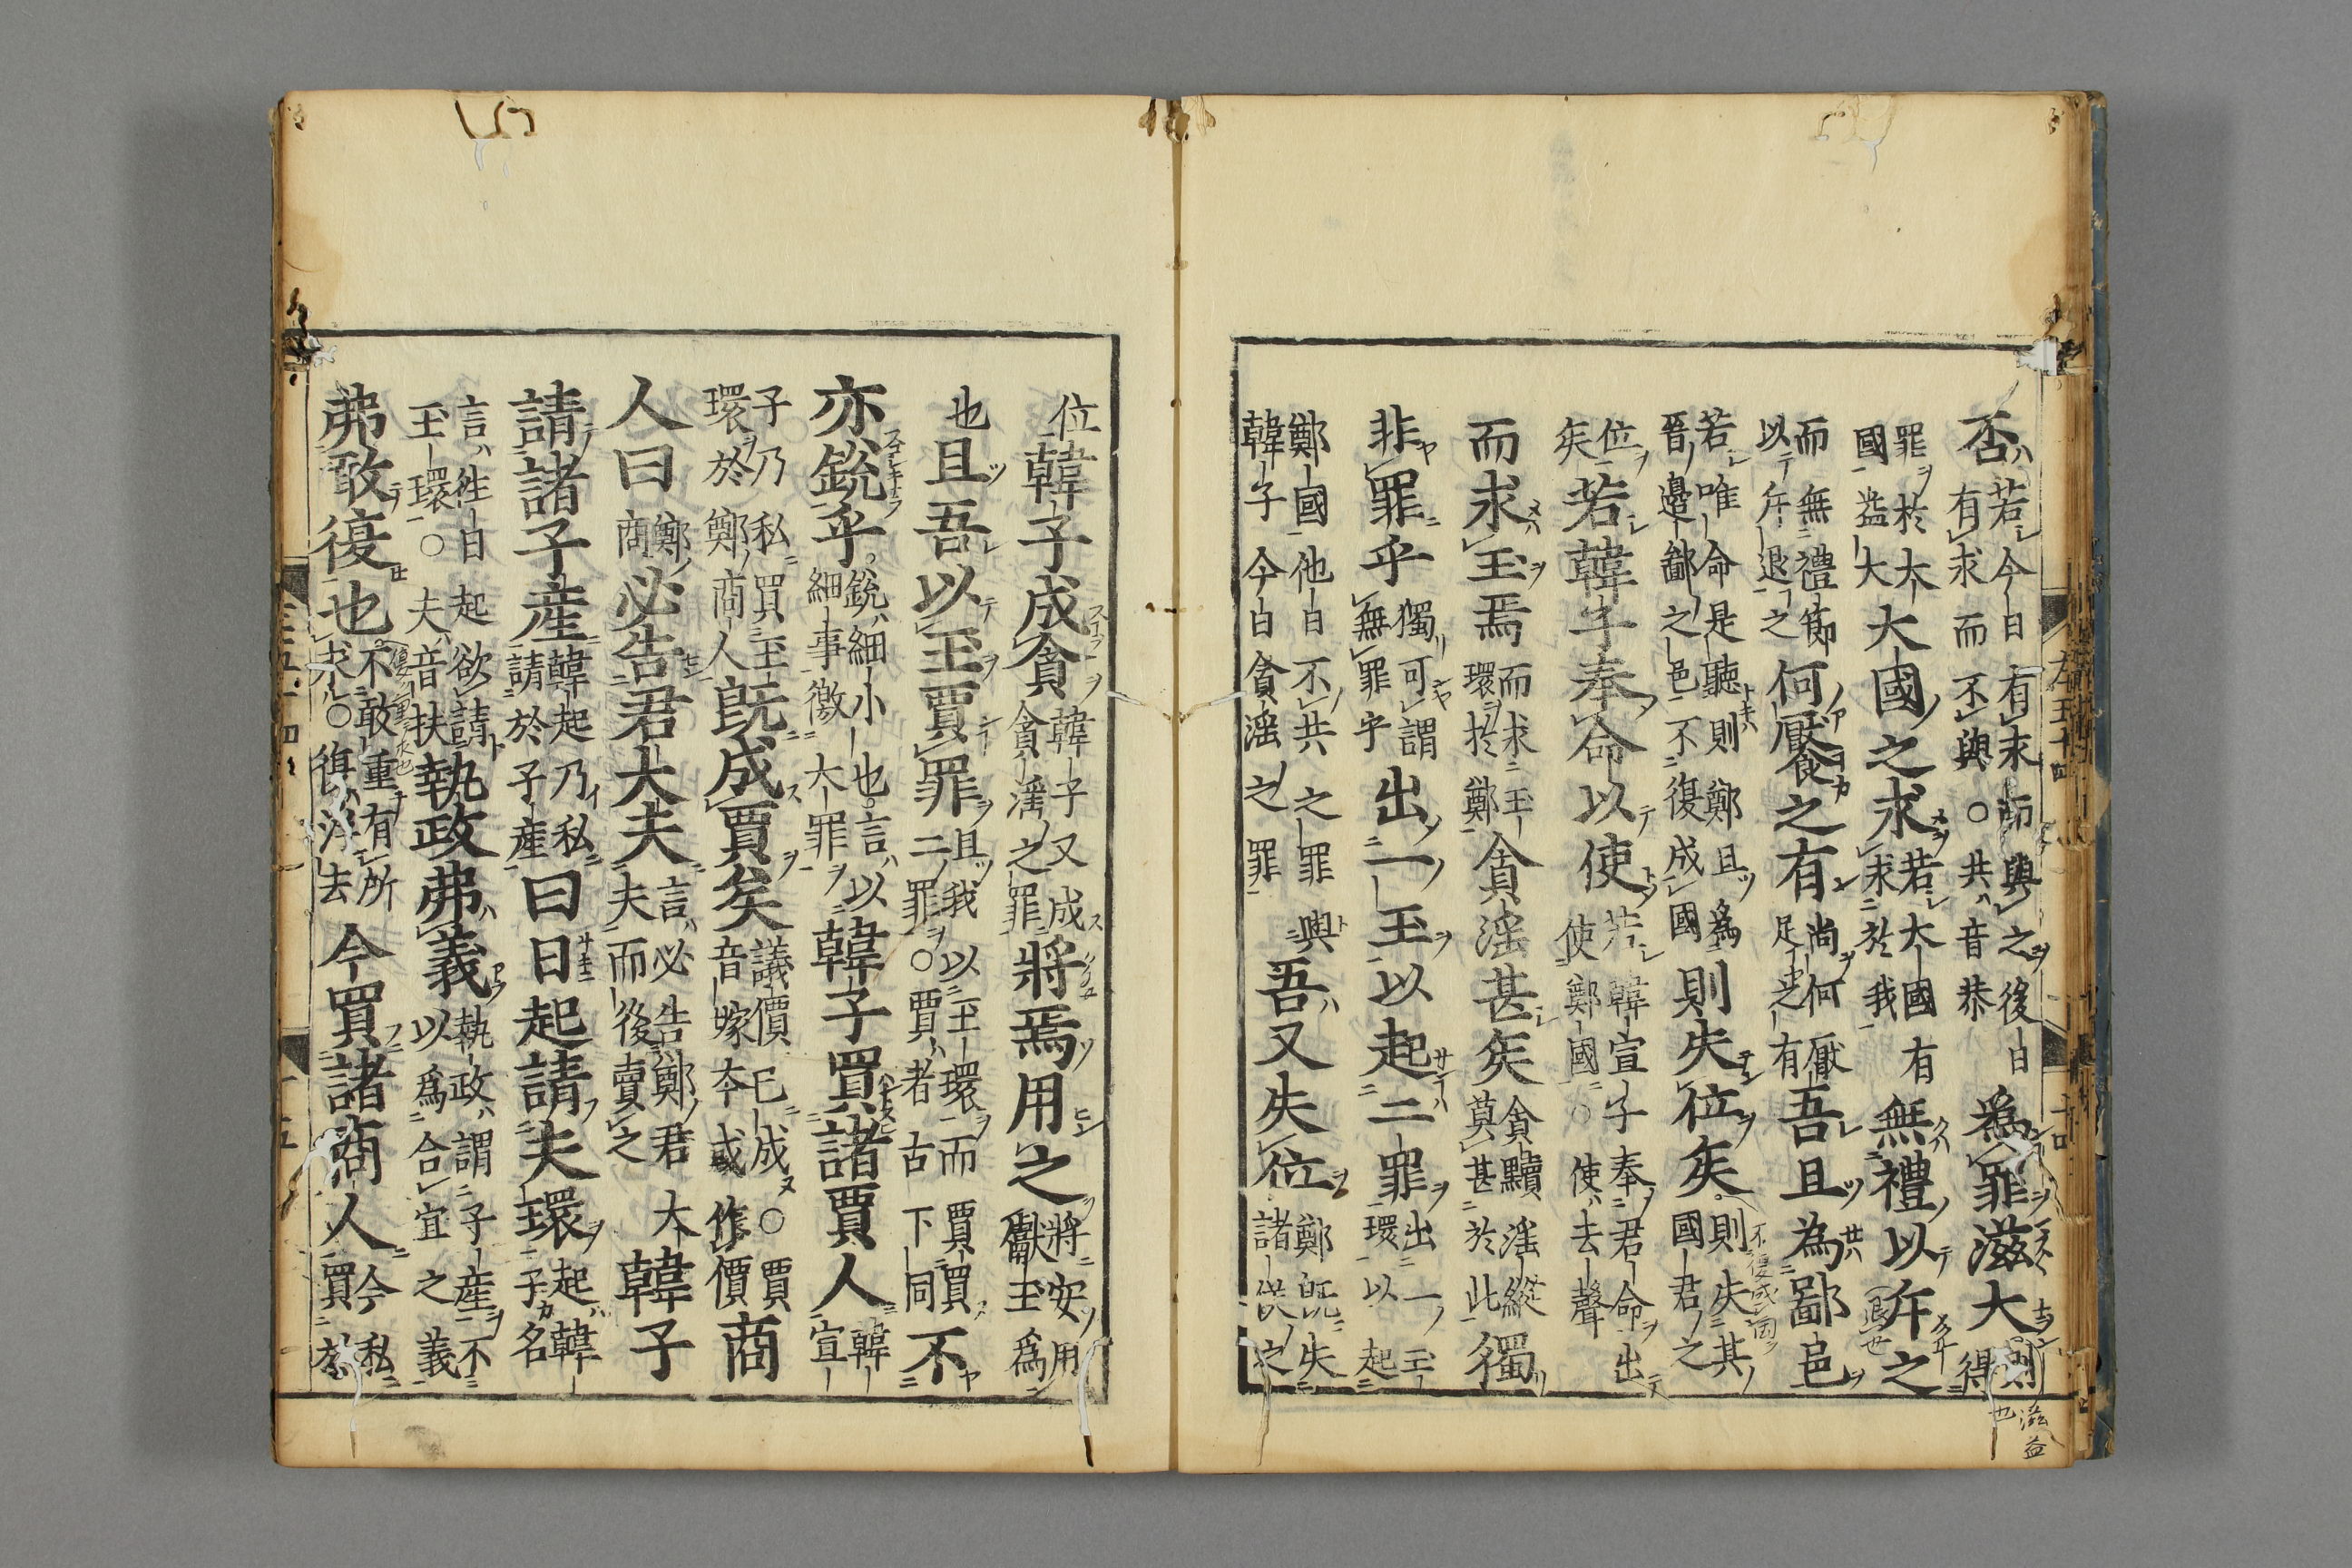 否若今日有求而與之後日有求而不與○共音恭爲罪滋大則得
罪於大國益大大國之求若大國有求於我無禮以斥之
而無禮節以斥退之何饜之有尚何厭足之有吾且為鄙邑
若唯命是聽則鄭且爲晉邊鄙之邑不復成國則失位矣則失其國君之
位矣若韓子奉命以使若韓宣子奉君命出使鄭國○使去聲
而求玉焉而求玉環於鄭貪淫甚矣貪黷淫縱莫甚於此獨
非罪乎獨可謂無罪乎出一玉以起二罪出一玉環以起
鄭國他日不共之罪與韓子今日貪淫之罪吾又失位鄭既失諸侯之
位韓子成貪韓子又成貪淫之罪將焉用之將安用獻玉爲
也且吾以玉賈罪且我以玉環而賈買二罪○賈者古下同不
亦銳乎銳細小也言以細事徼大罪韓子買諸賈人韓宣
子乃私買玉環於鄭商人既成賈矣議價已成○賈音嫁本或作價商
人曰鄭商必告君大夫言必告鄭君大夫而後賣之韓子
請諸子産韓起乃私請於子産曰日起請夫環起韓子名
言往日起欲請玉環○夫音扶執政弗義執政謂子産不以爲合宜之義
弗敢復也不敢重有所求○復浮去今買諸商人今私買於
滋益也
退也
不復成國
左五十四